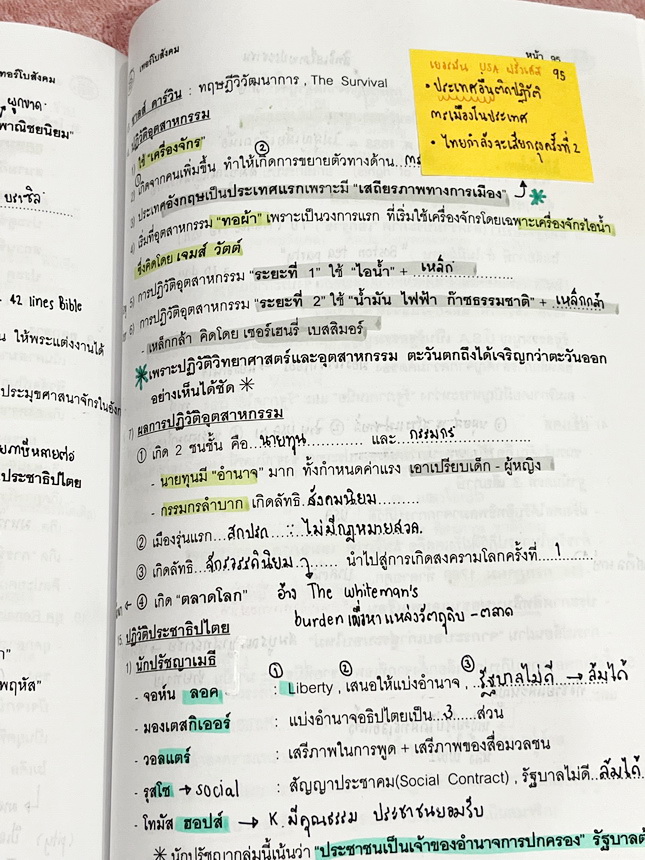 เทอร์โบสังคม
ผูกขาด
พาณิชยนิยม"
บราซิล
42 lines Bible
น ให้พระแต่งงานได้
ประมุขศาสนาจักรในอังก
ประชาธิปไตย
พฤหัส"
เทอร์โบสังคม
หน้า 95
เยอรมัน USA ฝรั่งเศส 95
• ประเทศอื่นติดปฏิวัติ
การเมืองในประเทศ
• ไทยกำลังจะเสียกรุงครั้งที่ 2
ชาลส์ ดาร์วิน : ทฤษฎีวิวัฒนาการ , The Survival
ปฏิวัติอุตสาหกรรม
1) ใช้ "เครื่องจักร"
2) เกิดจากคนเพิ่มขึ้น ทำให้เกิดการขยายตัวทางด้าน
3) ประเทศอังกฤษเป็นประเทศแรกเพราะมี "เสถียรภาพทางการเมือง"
4) เริ่มที่อุตสาหกรรม "ทอผ้า" เพราะเป็นวงการแรก ที่เริ่มใช้เครื่องจักรโดยเฉพาะเครื่องจักรไอน้ำ
ซึ่งคิดโดย เจมส์ วัตต์
5) การปฏิวัติอุตสาหกรรม "ระยะที่ 1" ใช้ "ไอน้ำ" + เหล็ก
6) การปฏิวัติอุตสาหกรรม "ระยะที่ 2" ใช้ "น้ำมัน ไฟฟ้า ก๊าซธรรมชาติ" + เหล็กกล้า
- เหล็กกล้า คิดโดย เซอร์เฮนรี่ เบสสิมอร์
* เพราะปฏิวัติวิทยาศาสตร์และอุตสาหกรรม ตะวันตกถึงได้เจริญกว่าตะวันออก
อย่างเห็นได้ชัด *
7) ผลการปฏิวัติอุตสาหกรรม
① เกิด 2 ชนชั้น คือ นายทุน และ กรรมกร
- นายทุนมี "อำนาจ" มาก ทั้งกำหนดค่าแรง เอาเปรียบเด็ก - ผู้หญิง
- กรรมกรลำบาก เกิดลัทธิ สังคมนิยม
② เมืองรุ่นแรก สกปรก ∵ ไม่มีกฎหมายสวล.
③ เกิดลัทธิ จักรวรรดินิยม นำไปสู่การเกิดสงครามโลกครั้งที่ 1
④ เกิด "ตลาดโลก" อ้าง The whiteman's
burden เพื่อหาแหล่งวัตถุดิบ - ตลาด
15. ปฏิวัติประชาธิปไตย
1) นักปรัชญาเมธี
- จอห์น ลอค : ① Liberty , ② เสนอให้แบ่งอำนาจ , ③ รัฐบาลไม่ดี → ล้มได้
- มองเตสกิเออร์ : แบ่งอำนาจอธิปไตยเป็น 3 ส่วน
- วอลแตร์ : เสรีภาพในการพูด + เสรีภาพของสื่อมวลชน
- รุสโซ → social : สัญญาประชาคม(Social Contract) , รัฐบาลไม่ดี ล้มได้
- โทมัส ฮอปส์ → K. มีคุณธรรม ประชาชนยอมรับ
* นักปรัชญากลุ่มนี้เน้นว่า "ประชาชนเป็นเจ้าของอำนาจการปกครอง" รัฐบาลต้